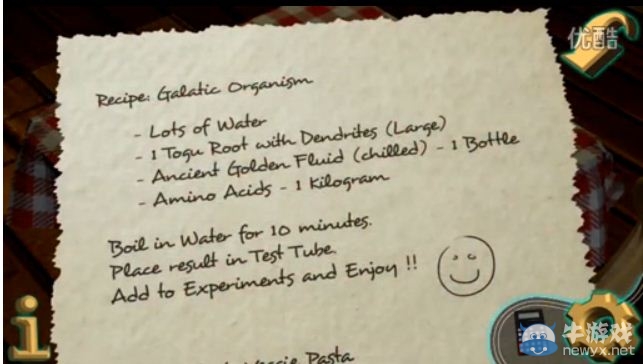 优酷
Recipe: Galatic Organism
- Lots of Water
- 1 Togu Root with Dendrites (Large)
- Ancient Golden Fluid (chilled) - 1 Bottle
- Amino Acids - 1 Kilogram
Boil in Water for 10 minutes.
Place result in Test Tube.
Add to Experiments and Enjoy !!
Veggie Pasta
i
牛游戏
newyx.net